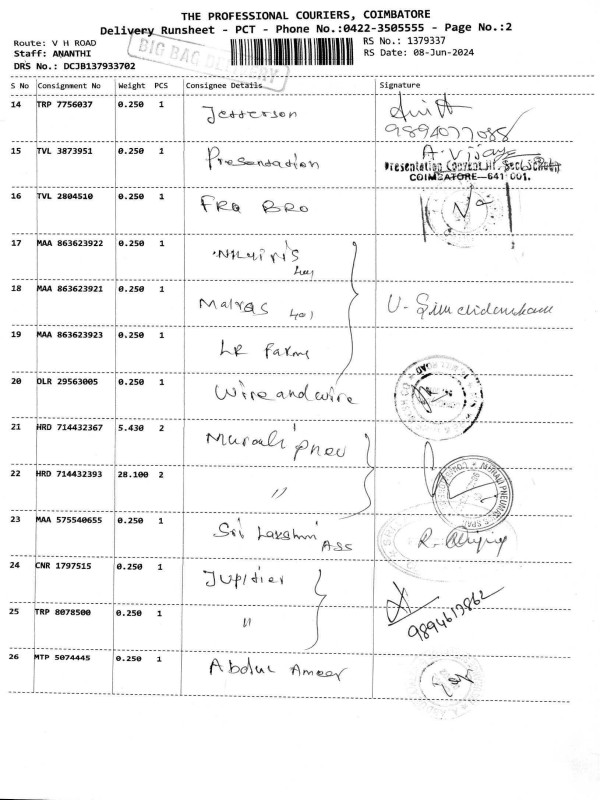 THE PROFESSIONAL COURIERS, COIMBATORE
Delivery Runsheet - PCT - Phone No.:0422-3505555 - Page No.:2
Route: V H ROAD
RS No.: 1379337
Staff: ANANTHI
RS Date: 08-Jun-2024
DRS No.: DCJB137933702
BIG BAG DELIVERY
S No Consignment No Weight PCS Consignee Details Signature
14 TRP 7756037 0.250 1 Jefferson
9894077088
15 TVL 3873951 0.250 1 Presentation A. Vijay
Presentation Convent Hr. Sec. School
COIMBATORE-641 001.
16 TVL 2804510 0.250 1 FRG BRO
17 MAA 863623922 0.250 1
18 MAA 863623921 0.250 1 Matras
19 MAA 863623923 0.250 1 LR Farms
20 DLR 29563005 0.250 1 Wire and wire
21 HRD 714432367 5.430 2 Murali pneu
22 HRD 714432393 28.100 2 "
23 MAA 575540655 0.250 1 Sri Lakshmi ASS R.
24 CNR 1797515 0.250 1 Jupitier
25 TRP 8078500 0.250 1 " 9894613862
26 MTP 5074445 0.250 1 Abdul Ameer